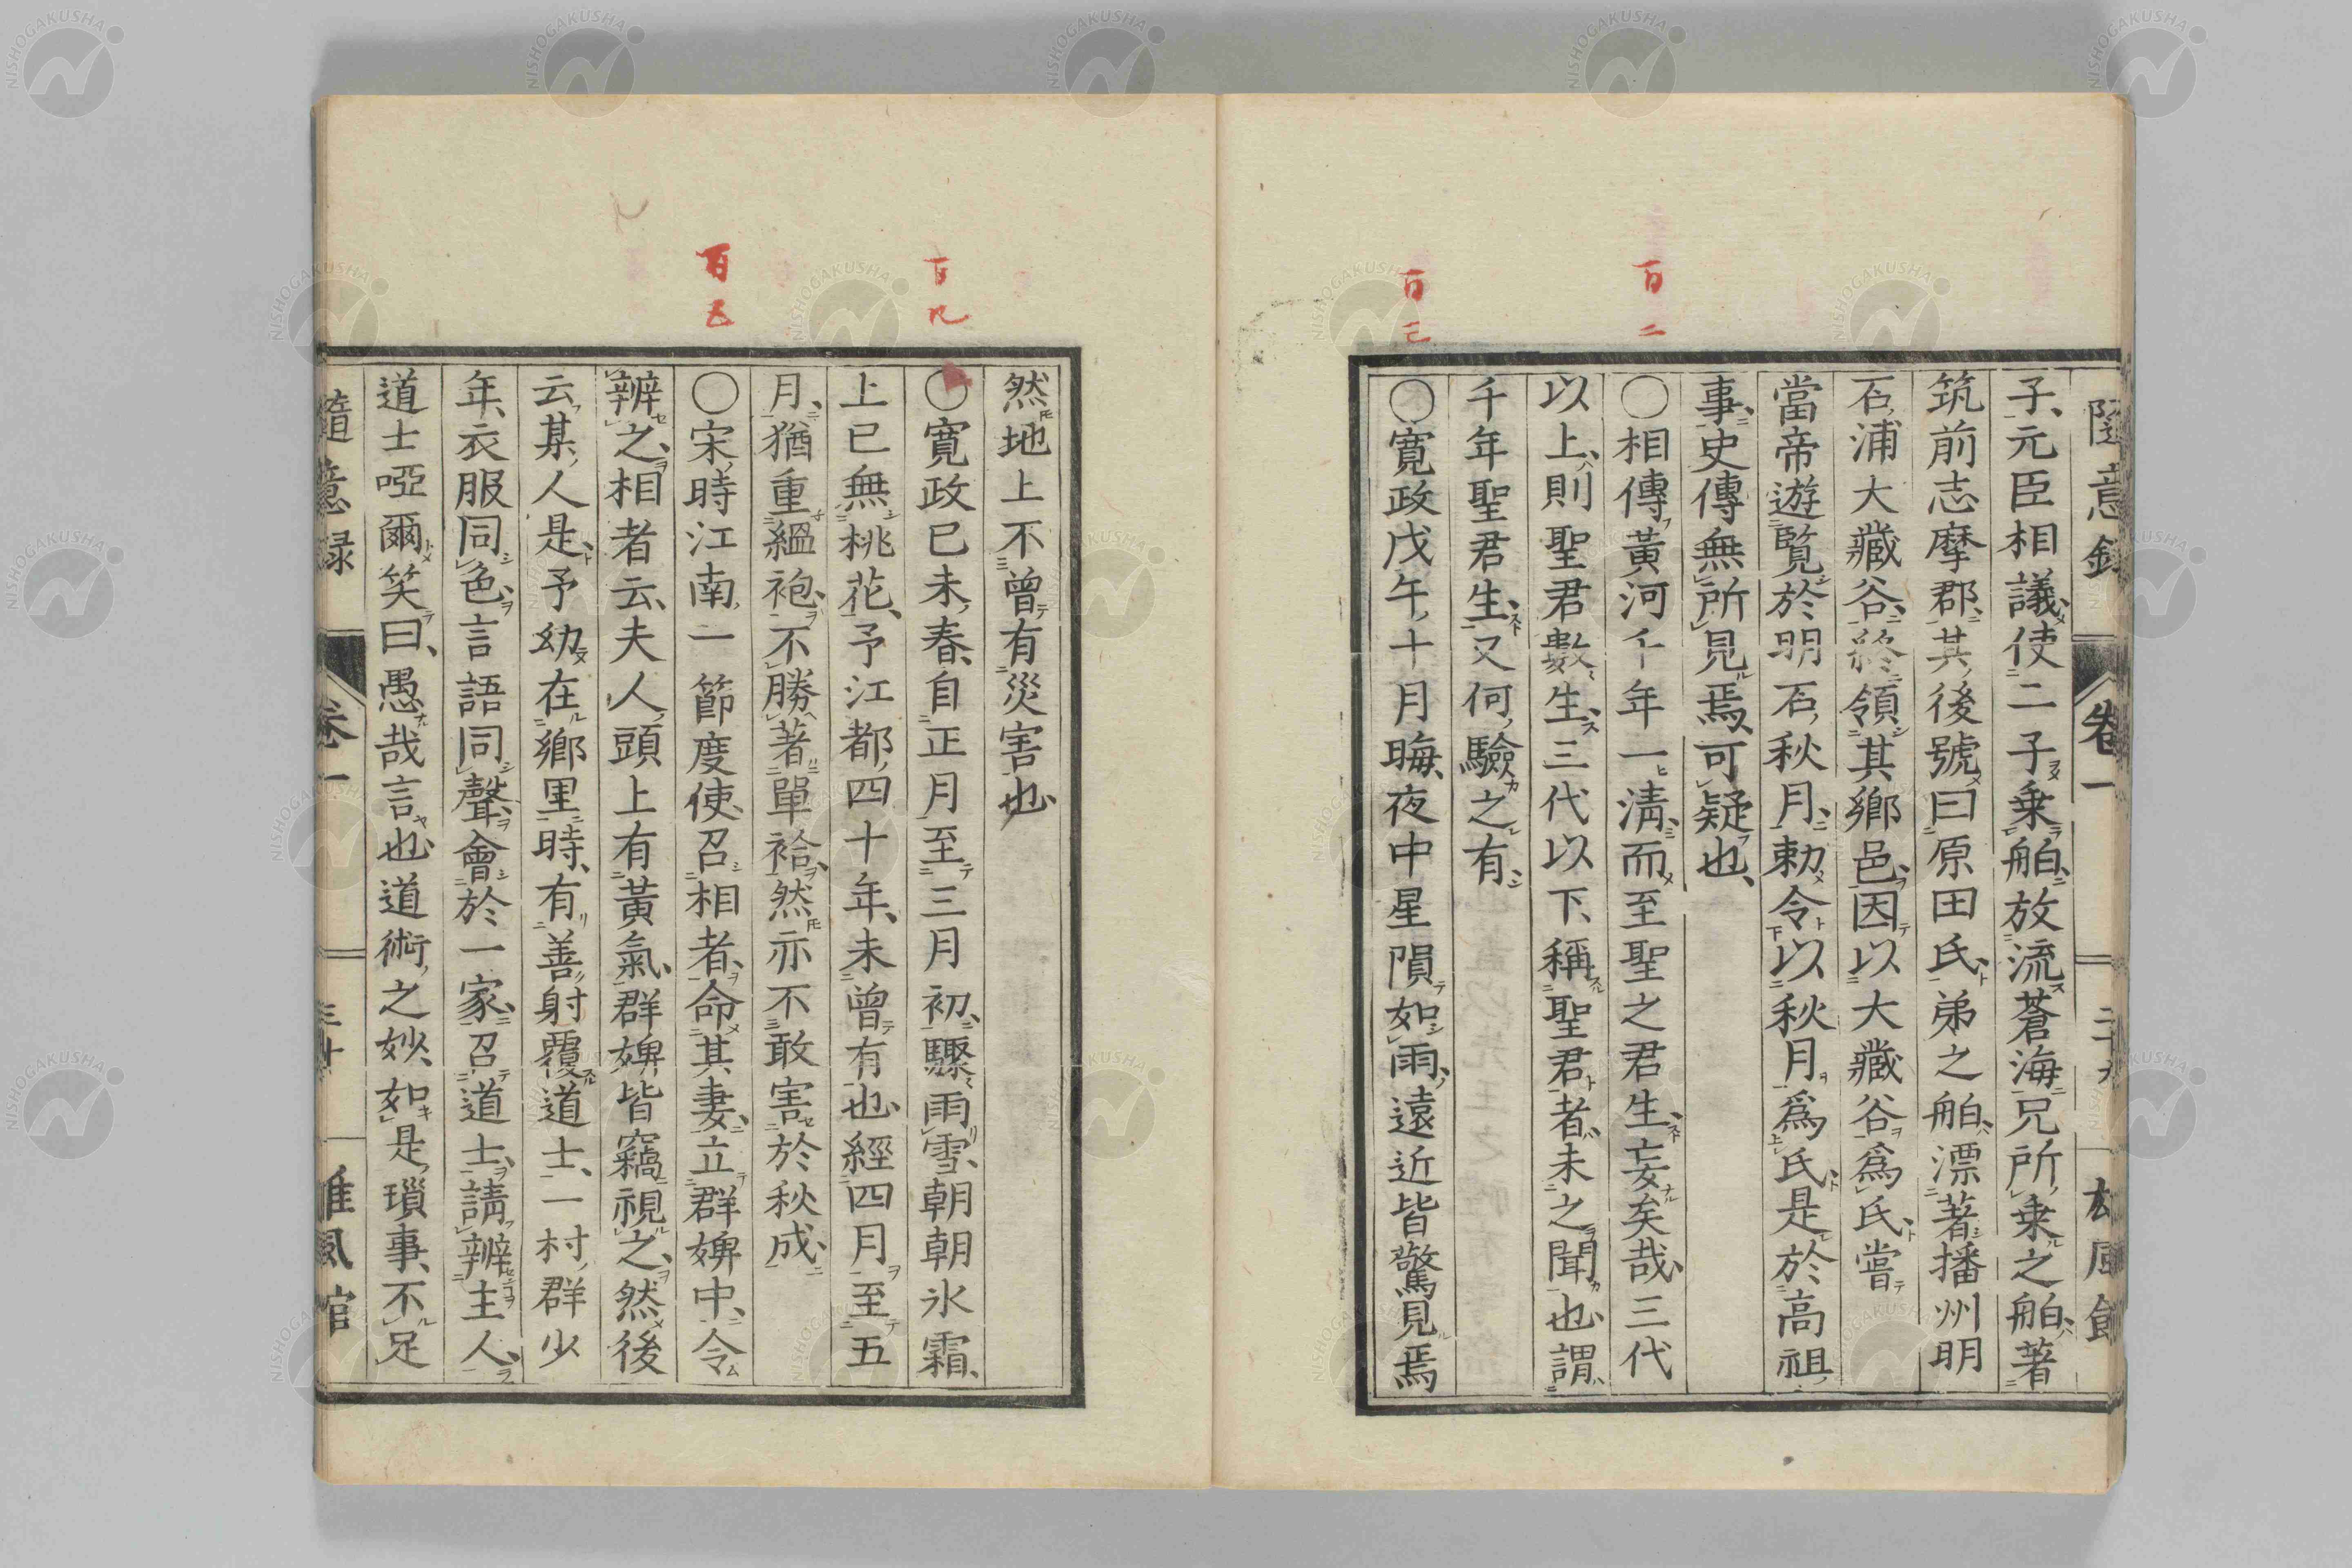 隨意錄 卷一 二十九 雄風館
子元臣相議使二子乗舶放流蒼海兄所乗之舶著
筑前志摩郡其後號曰原田氏弟之舶漂著播州明
石浦大藏谷終領其郷邑因以大藏谷爲氏嘗
當帝遊覧於明石秋月勅令以秋月爲氏是於高祖
事史傳無所見焉可疑也
〇相傳黃河千年一淸而至聖之君生妄矣哉三代
以上則聖君數生三代以下稱聖君者未之聞也謂
千年聖君生又何驗之有
〇寛政戊午十月晦夜中星隕如雨遠近皆驚見焉
然地上不曾有災害也
〇寛政已未春自正月至三月初驟雨雪朝朝氷霜
上已無桃花予江都四十年未曾有也經四月至五
月猶重縕袍不勝著單袷然亦不敢害於秋成
〇宋時江南一節度使召相者命其妻立群婢中令
辨之相者云夫人頭上有黃氣群婢皆竊視之然後
云某人是予幼在郷里時有善射覆道士一村群少
年衣服同色言語同聲會於一家召道士請辨主人
道士啞爾笑曰愚哉言也道術之妙如是瑣事不足
隨意錄 卷一 三十 雄風館
百二
百三
百五
NISHOGAKUSHA